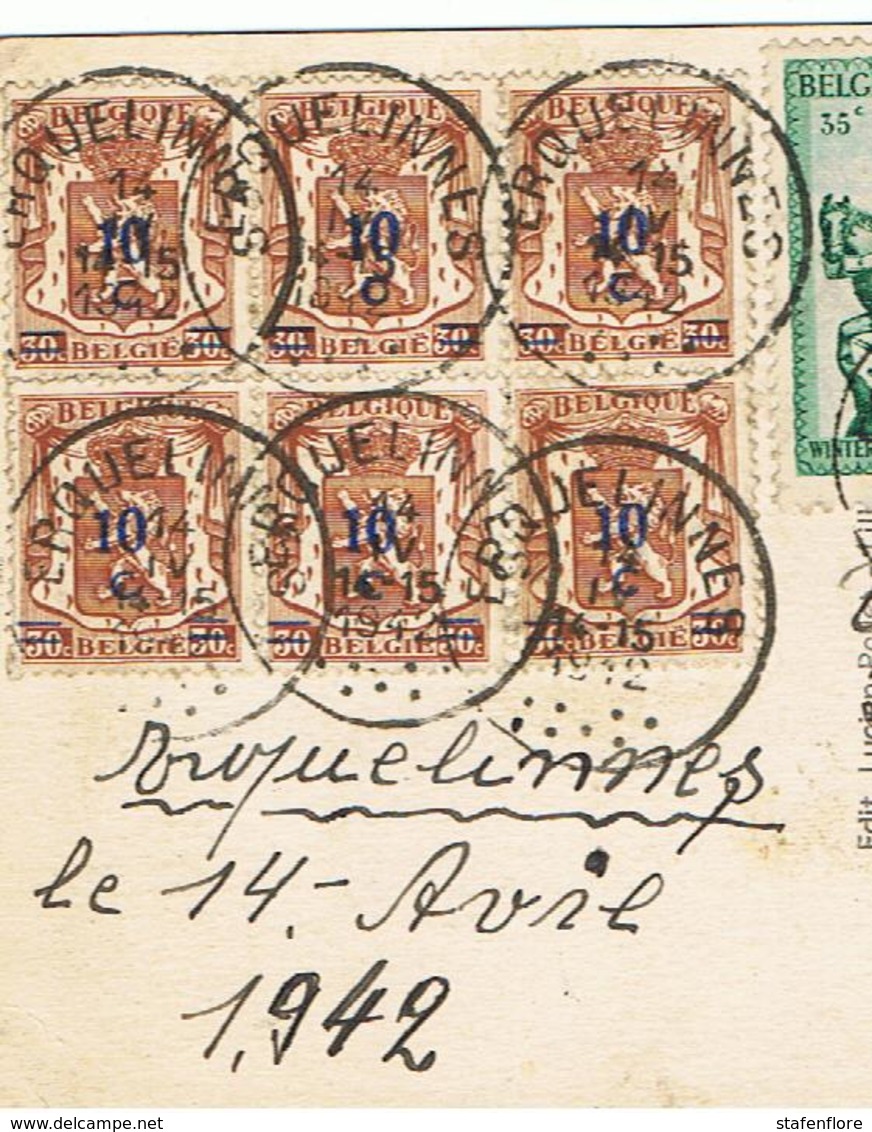 BELGIQUE BELGIQUE BELGIQUE
ERQUELINNES ERQUELINNES ERQUELINNES
14 14 14
IV IV IV
10 10 10
14-15 14-15 14-15
c c c
1942 1942 1942
30c BELGIË 30c 30c BELGIË 30c 30c BELGIË 30c
BELG
35c
WINTER
BELGIQUE BELGIQUE BELGIQUE
ERQUELINNES ERQUELINNES ERQUELINNES
14 14 14
10 10 10
IV IV IV
c c c
14-15 14-15 14-15
1942 1942
30c BELGIË 30c 30c BELGIË 30c 30c BELGIË 30c
Edit. Lucien
Erquelinnes
le 14.- Avril
1942
stafenflore